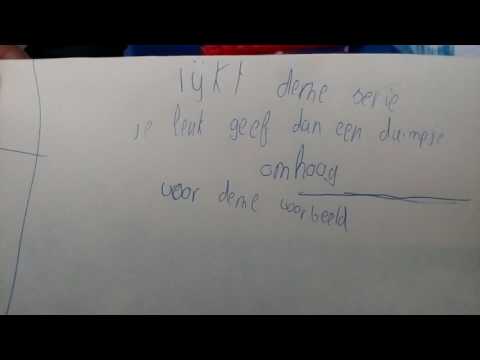 lijkt deme serie
je leuk geef dan een duimpje
omhoog
voor deme voorbeeld